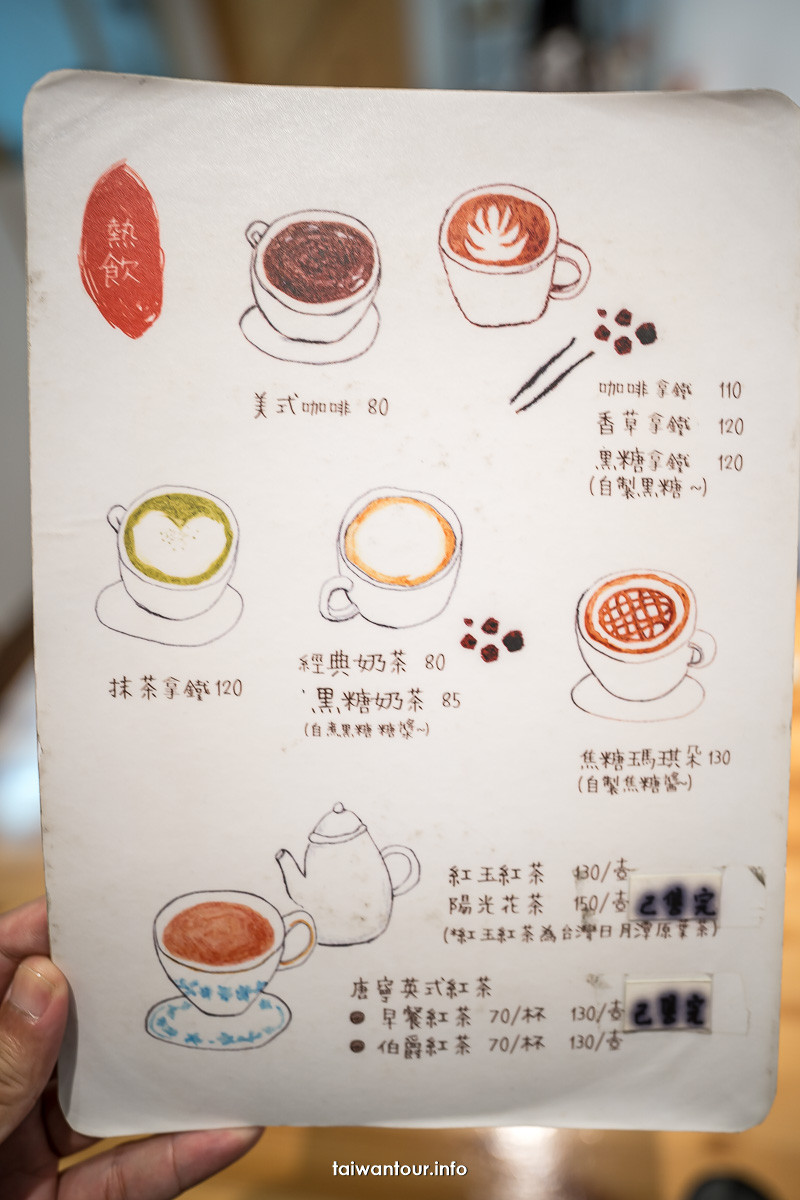 熱飲
美式咖啡 80
咖啡拿鐵 110
香草拿鐵 120
黑糖拿鐵 120
(自製黑糖~)
抹茶拿鐵 120
經典奶茶 80
黑糖奶茶 85
(自煮黑糖糖漿~)
焦糖瑪琪朵 130
(自製焦糖醬~)
紅玉紅茶 130/壺
陽光花茶 150/壺 已售完
(*紅玉紅茶為台灣日月潭原葉茶)
唐寧英式紅茶
早餐紅茶 70/杯 130/壺 已售完
伯爵紅茶 70/杯 130/壺
taiwantour.info